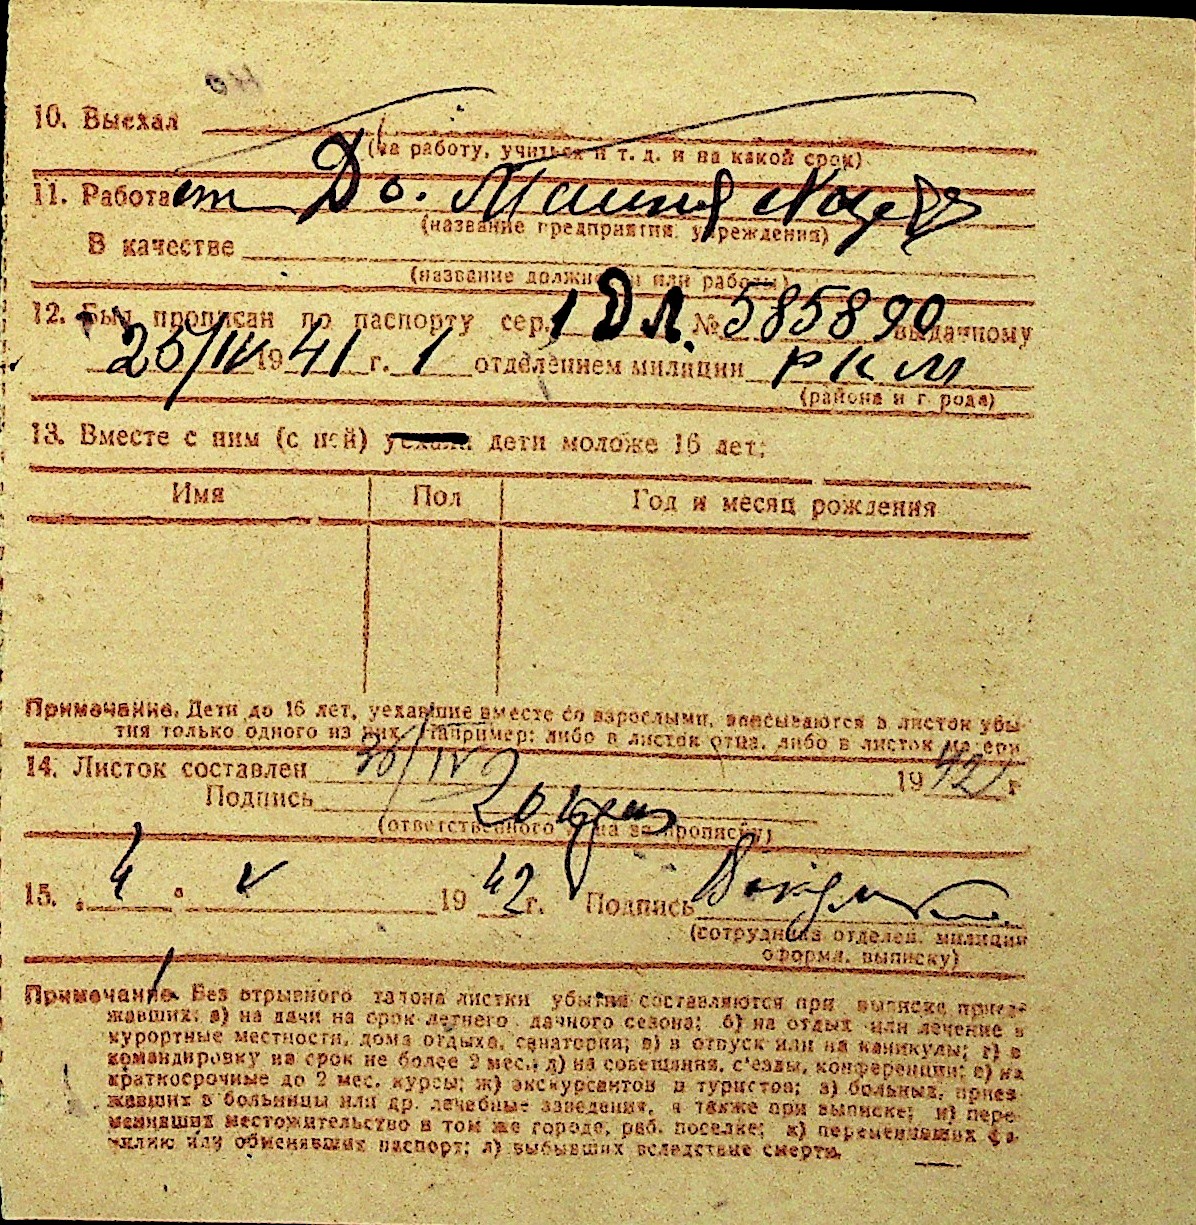 10. Выехал
(на работу, учиться и т. д. и на какой срок)
11. Работает До.
(название предприятия, учреждения)
В качестве
(название должности или работы)
12. Был прописан по паспорту сер. 1 ДЛ. № 585890 выданному
25/IV 1941 г. 1 отделением милиции РКМ
(района и города)
13. Вместе с ним (с ней) уехали дети моложе 16 лет:
Имя Пол Год и месяц рождения
Примечание. Дети до 16 лет, уехавшие вместе со взрослыми, вписываются в листок убы-
тия только одного из них. Например: либо в листок отца, либо в листок матери
14. Листок составлен 30/IV 1942 г
Подпись
(ответственного лица за прописку)
15. „4“ V 1942 г. Подпись
(сотрудника отделен. милиции
оформл. выписку)
Примечание. Без отрывного талона листки убытия составляются при выписке приез-
жавших: а) на дачи на срок летнего дачного сезона; б) на отдых или лечение в
курортные местности, дома отдыха, санатории; в) в отпуск или на каникулы; г) в
командировку на срок не более 2 мес.; д) на совещания, с'езды, конференции; е) на
краткосрочные до 2 мес. курсы; ж) экскурсантов и туристов; з) больных, приез-
жавших в больницы или др. лечебные заведения, а также при выписке; и) пере-
менивших местожительство в том же городе, раб. поселке; к) переменивших фа-
милию или обменявших паспорт; л) выбывших вследствие смерти.